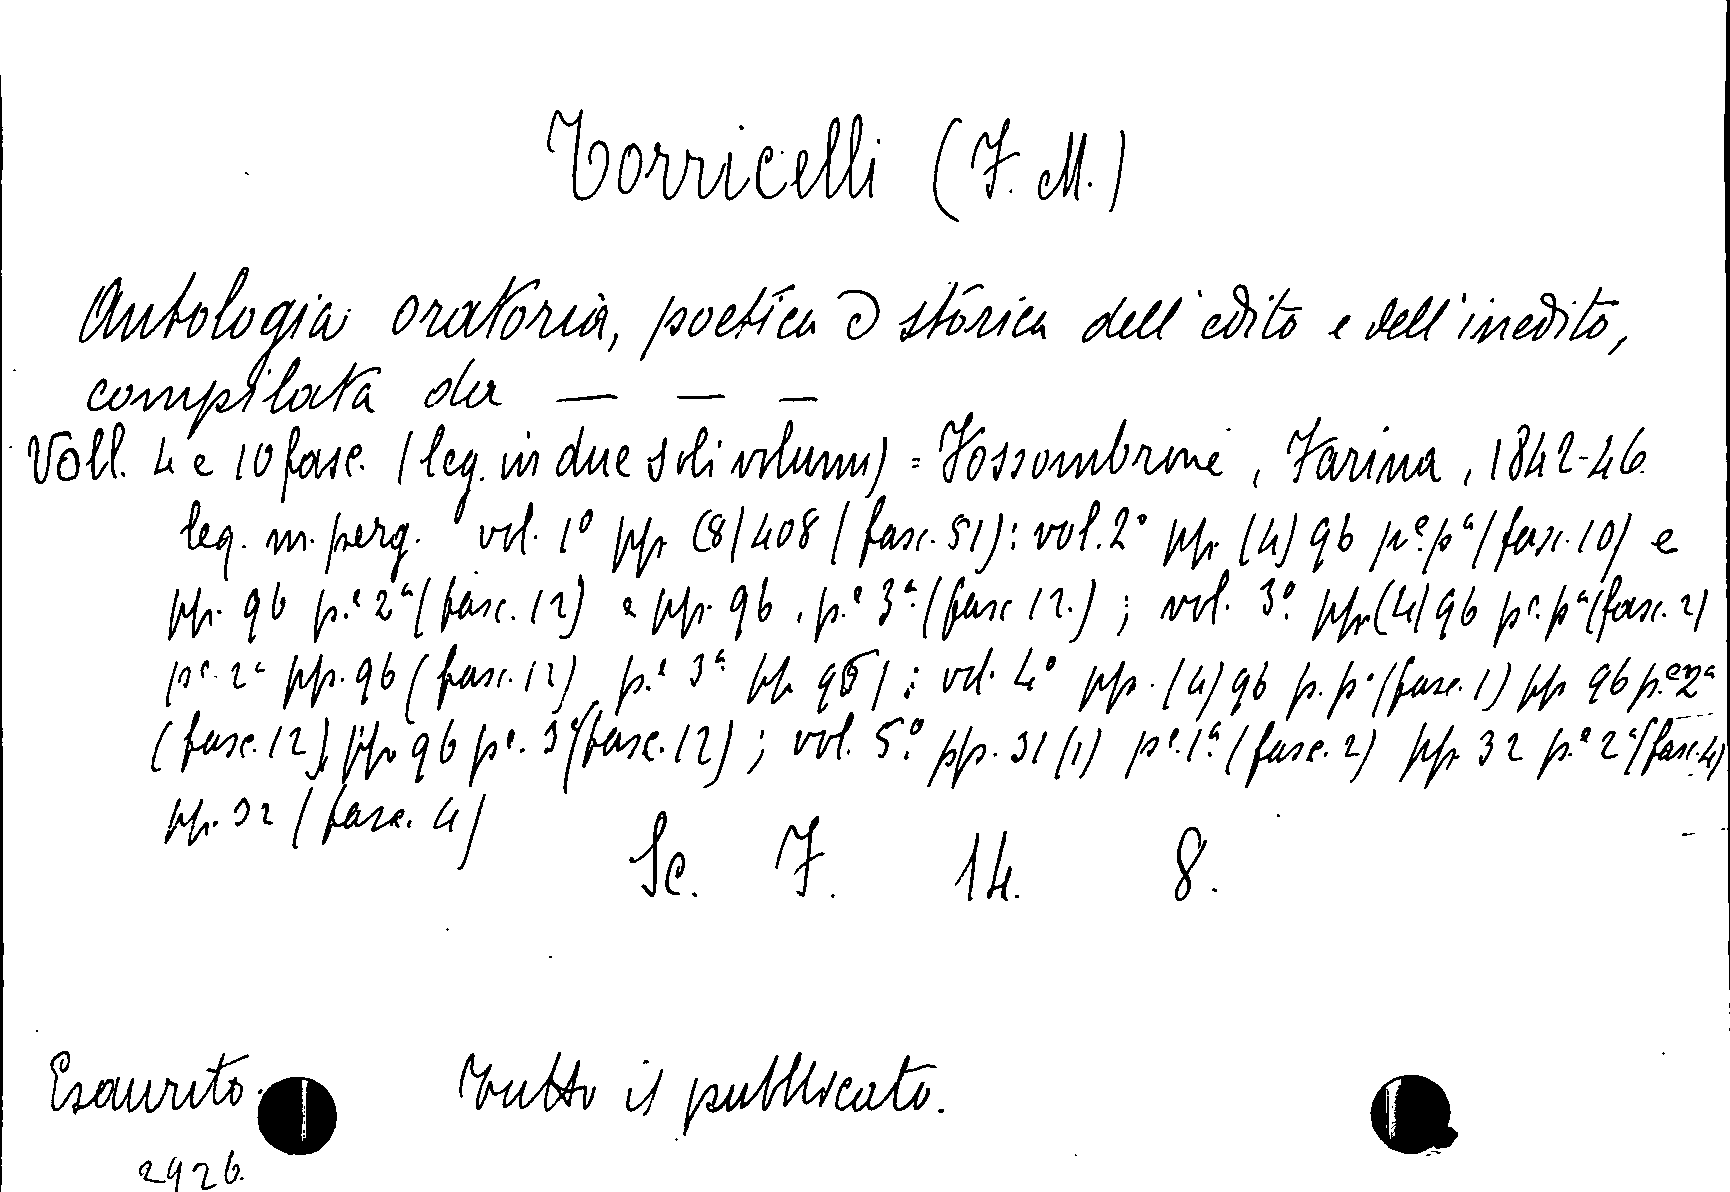 Torricelli (F. M.)
Antologia oratoria, poetica e storica dell'edito e dell'inedito,
compilata da — — —
Voll. 4 e 10 fasc. (leg. in due soli volumi) = Fossombrone, Farina, 1842-46.
leg. in perg. vol. 1° pp. (8) 408 (fasc. 51): vol. 2° pp. (4) 96 p.e p.a (fasc. 10) e
pp. 96 p.e 2a (fasc. 12) e pp. 96. p.e 3a. (fasc 12.); vol. 3° pp. (4) 96 p.e p.a (fasc. 2)
p.e 2a pp. 96 (fasc. 12) p.e 3a pp. 96); vol. 4° pp. (4) 96 p. p.a (fasc. 1) pp 96 p.e 2a
(fasc. 12), pp. 96 p.e 3a (fasc. 12); vol. 5° pp. 31 (1) p.e 1a (fasc. 2) pp. 32 p.e 2a (fasc. 4)
pp. 32 (fasc. 4)
Sc. F. 14. 8.
Esaurito. Tutto il pubblicato.
2926.